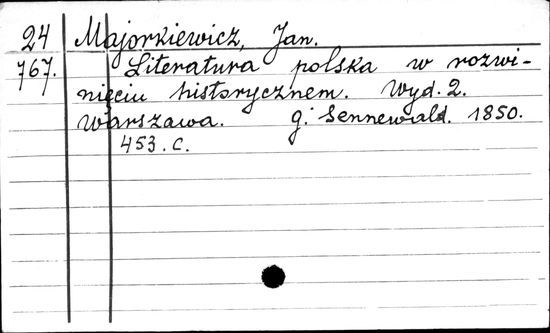 24 Majorkiewicz, Jan.
767. Literatura polska w rozwi-
nięciu historycznem. Wyd. 2.
Warszawa. G. Sennewald. 1850.
453. c.